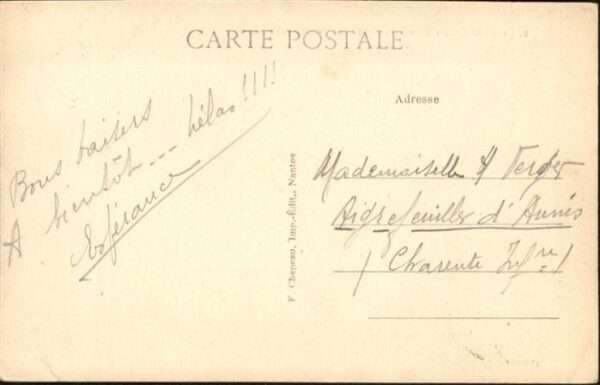 CARTE POSTALE
Bons baisers
A bientôt... hélas!!!!
Espérance
F. Chapeau, Imp.-Édit., Nantes
Adresse
Mademoiselle Y Verger
Aigrefeuilles d'Aunis
(Charente Infre)